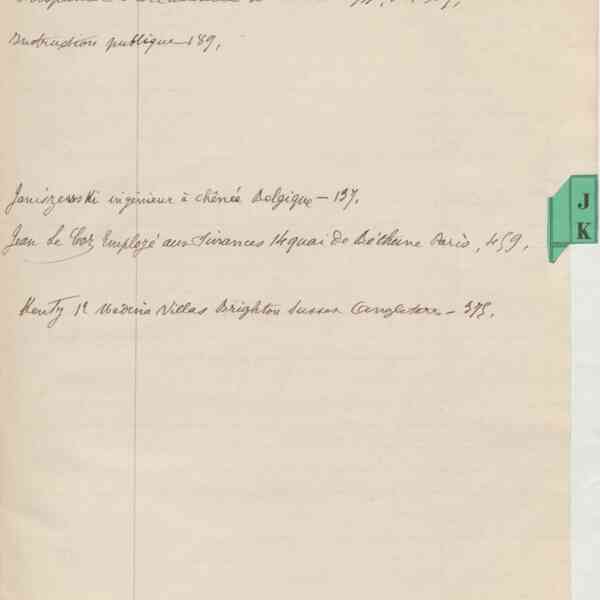 Instruction publique 189,
Janiszewski ingénieur à chênée Belgique – 137,
J
K
Jean Le Coz Employé aux finances 14 quai de Béthune Paris, 459,
Henty 12 Medina Villas Brighton Sussex Angleterre – 375,